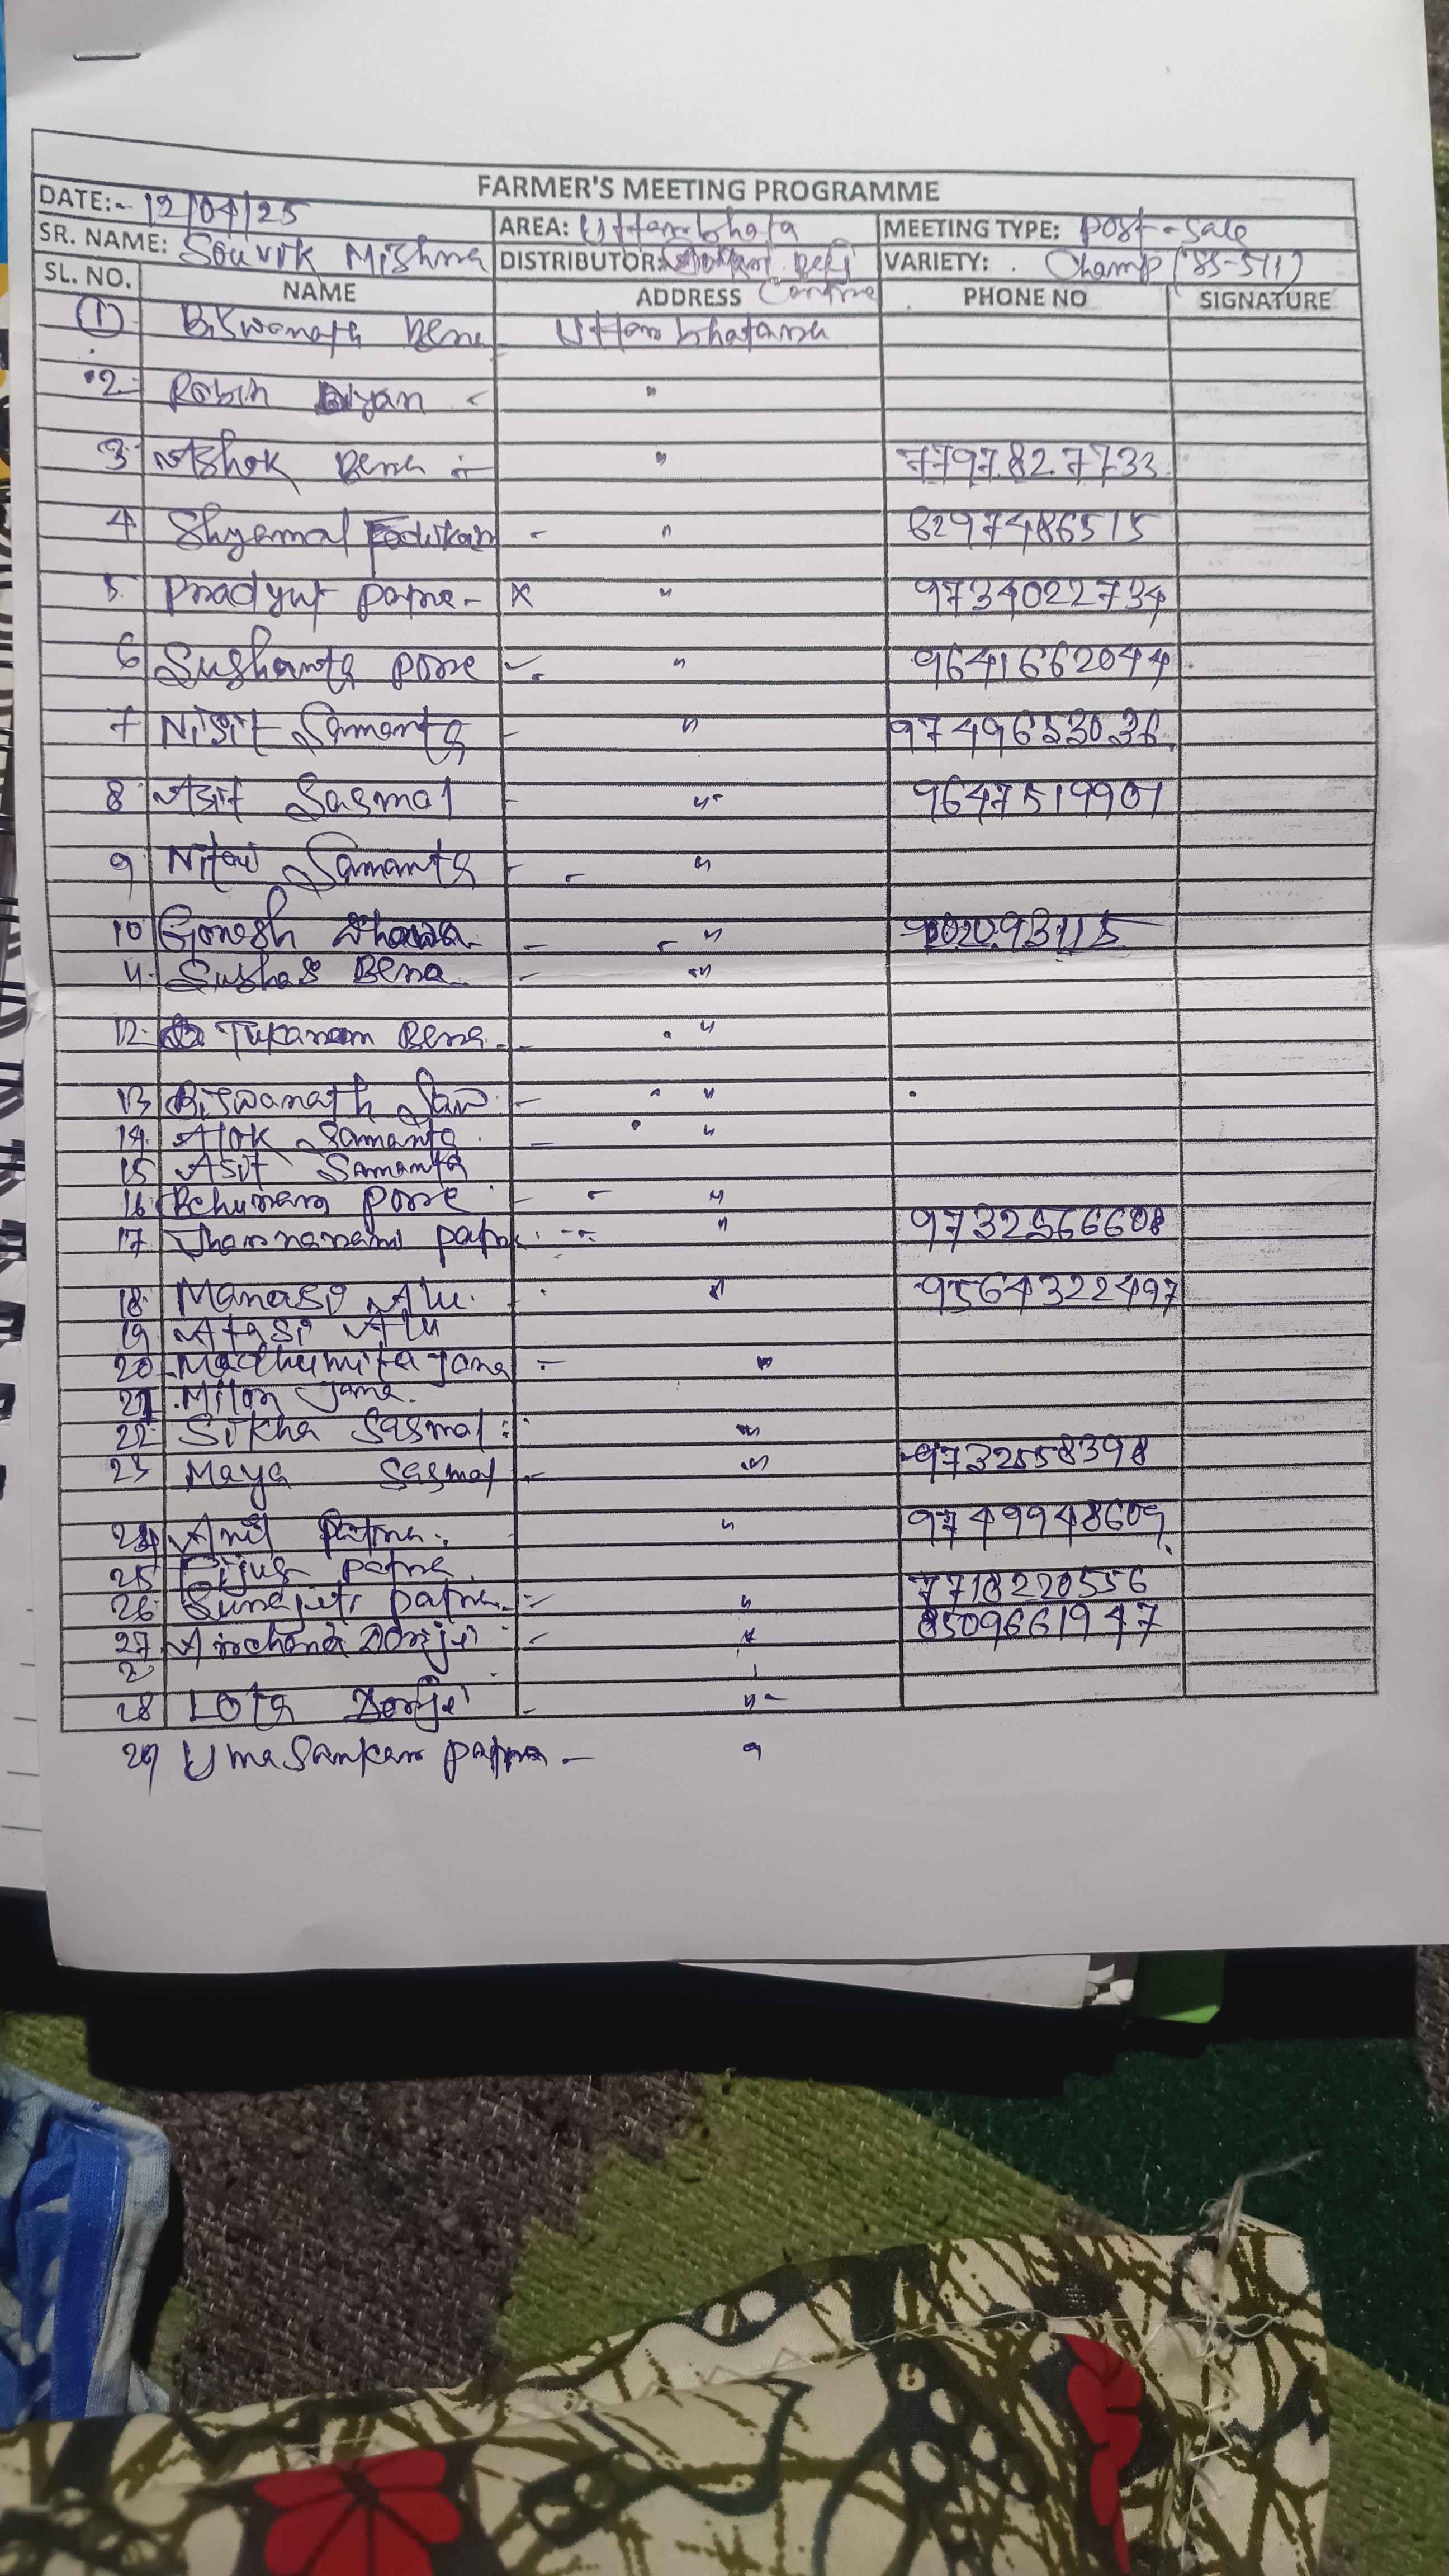 FARMER'S MEETING PROGRAMME
DATE:- 12/04/25 AREA: Uttarbhata MEETING TYPE: post-sale
SR. NAME: Souvik Mishra DISTRIBUTOR: VARIETY: Champ (85-511)
SL. NO. NAME ADDRESS PHONE NO SIGNATURE
1 Biswanath Bera Uttarbhatara
2 Robin "
3 Ashok Bera " 7797827733
4 Shyamal " 6297486515
5 Pradyut patra - x " 9734022734
6 Sushanta pore " 9641662044
7 Nisit Samanta " 9749653036
8 Asit Sasmal " 9647519901
9 Nitai Samanta "
10 Ganesh "
11. Subhas Bera "
12. Tukaram Bera "
13 Biswanath "
14. Alok Samanta "
15 Asit Samanta
16 pore "
17 " 9732566608
18. Manasi Alu " 9564322497
19 Atasi Alu
20 Madhumita Jana "
21 Milan Jana.
22 Sikha Sasmal "
23 Maya Sasmal " 9732558398
24 Patra " 9749948609
25 patra
26 patra " 7718220556
27 Archana Dorjji " 8509661947
2
28 Lota Dorjji "
29 Uma Sankar patra - "